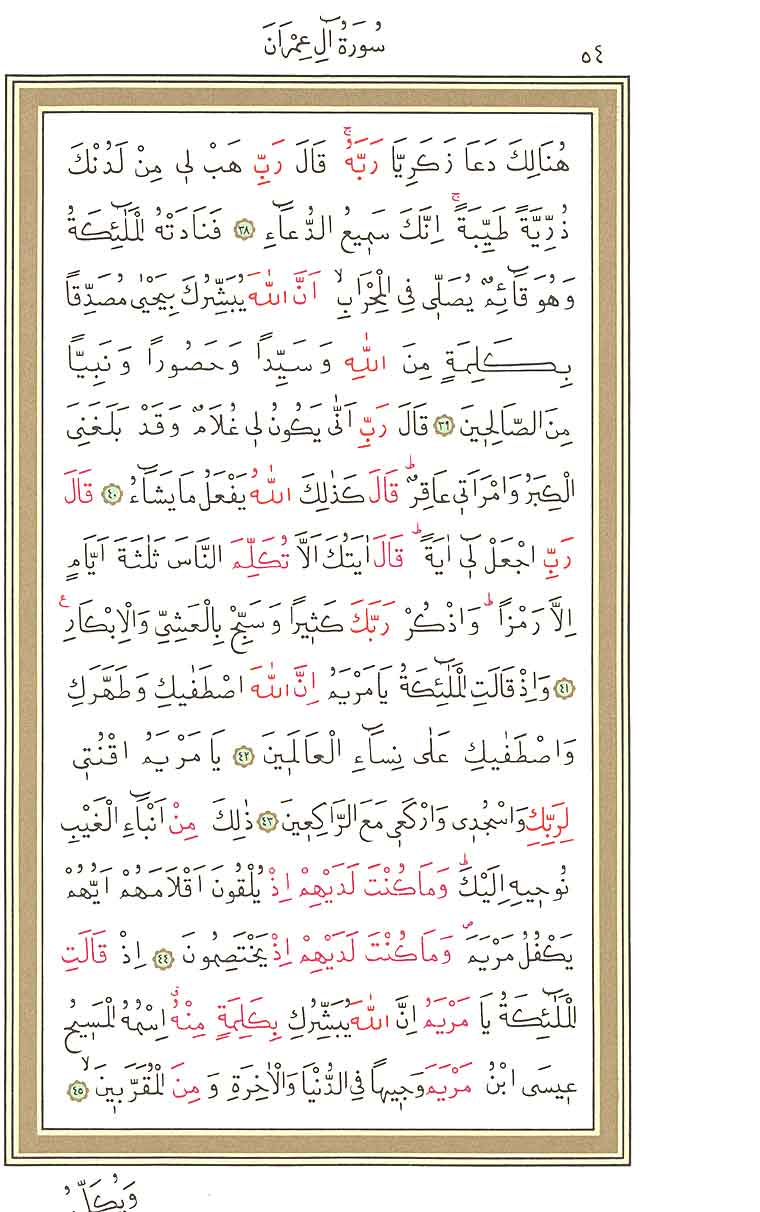 ٥٤
سُورَةُ اٰلِ عِمْرَانَ
هُنَالِكَ دَعَا زَكَرِيَّا رَبَّهُۚ قَالَ رَبِّ هَبْ ل۪ي مِنْ لَدُنْكَ
ذُرِّيَّةً طَيِّبَةًۚ اِنَّكَ سَم۪يعُ الدُّعَٓاءِ ﴿٣٨﴾ فَنَادَتْهُ الْمَلٰٓئِكَةُ
وَهُوَ قَٓائِمٌ يُصَلّ۪ي فِي الْمِحْرَابِۙ اَنَّ اللّٰهَ يُبَشِّرُكَ بِيَحْيٰى مُصَدِّقاً
بِكَلِمَةٍ مِنَ اللّٰهِ وَسَيِّداً وَحَصُوراً وَنَبِيًّا
مِنَ الصَّالِح۪ينَ ﴿٣٩﴾ قَالَ رَبِّ اَنّٰى يَكُونُ ل۪ي غُلَامٌ وَقَدْ بَلَغَنِيَ
الْكِبَرُ وَامْرَاَت۪ي عَاقِرٌۜ قَالَ كَذٰلِكَ اللّٰهُ يَفْعَلُ مَا يَشَٓاءُ ﴿٤٠﴾ قَالَ
رَبِّ اجْعَلْ ل۪ٓي اٰيَةًۜ قَالَ اٰيَتُكَ اَلَّا تُكَلِّمَ النَّاسَ ثَلٰثَةَ اَيَّامٍ
اِلَّا رَمْزاًۜ وَاذْكُرْ رَبَّكَ كَث۪يراً وَسَبِّحْ بِالْعَشِيِّ وَالْاِبْكَارِ۟
﴿٤١﴾ وَاِذْ قَالَتِ الْمَلٰٓئِكَةُ يَا مَرْيَمُ اِنَّ اللّٰهَ اصْطَفٰيكِ وَطَهَّرَكِ
وَاصْطَفٰيكِ عَلٰى نِسَٓاءِ الْعَالَم۪ينَ ﴿٤٢﴾ يَا مَرْيَمُ اقْنُت۪ي
لِرَبِّكِ وَاسْجُد۪ي وَارْكَع۪ي مَعَ الرَّاكِع۪ينَ ﴿٤٣﴾ ذٰلِكَ مِنْ اَنْبَٓاءِ الْغَيْبِ
نُوح۪يهِ اِلَيْكَۜ وَمَا كُنْتَ لَدَيْهِمْ اِذْ يُلْقُونَ اَقْلَامَهُمْ اَيُّهُمْ
يَكْفُلُ مَرْيَمَۖ وَمَا كُنْتَ لَدَيْهِمْ اِذْ يَخْتَصِمُونَ ﴿٤٤﴾ اِذْ قَالَتِ
الْمَلٰٓئِكَةُ يَا مَرْيَمُ اِنَّ اللّٰهَ يُبَشِّرُكِ بِكَلِمَةٍ مِنْهُۗ اِسْمُهُ الْمَس۪يحُ
ع۪يسَى ابْنُ مَرْيَمَ وَج۪يهاً فِي الدُّنْيَا وَالْاٰخِرَةِ وَمِنَ الْمُقَرَّب۪ينَۙ ﴿٤٥﴾
وَيُكَلِّمُ